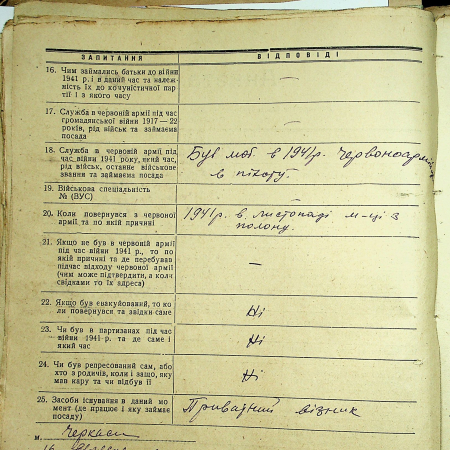 ЗАПИТАННЯ ВІДПОВІДІ
16. Чим займались батьки до війни
1941 р. і в даний час та належ-
ність їх до комуністичної пар-
тії і з якого часу
—
17. Служба в червоній армії під час
громадянської війни 1917—22
років, рід військ та займаєма
посада
—
18. Служба в червоній армії під
час війни 1941 року, який час,
рід військ, останнє військове
звання та займаєма посада
Був моб. в 1941 р. Червоноармієць
в піхоту
19. Військова спеціяльність
№ (ВУС)
20. Коли повернувся з червоної
армії та по якій причині
1941 р. в листопаді м-ці з
полону.
21. Якщо не був в червоній армії
під час війни 1941 р., то по
якій причині та де перебував
підчас відходу червоної армії
(чим може підтвердити, а коли
свідками то їх адреса)
—
22. Якщо був евакуйований, то ко-
ли повернувся та звідки саме
Ні
23. Чи був в партизанах під час
війни 1941 р. та де саме і
який час
Ні
24. Чи був репресований сам, або
хто з родичів, коли і защо, яку
мав кару та чи відбув її
Ні
25. Засоби існування в даний мо-
мент (де працює і яку займає
посаду)
Приватний візник
м. Черкаси